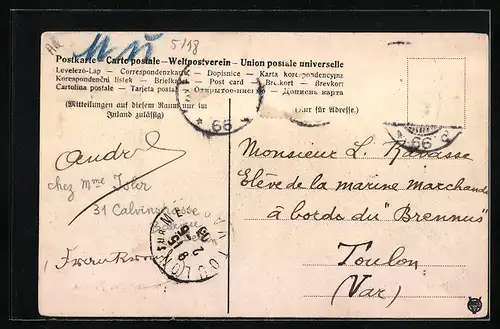 5/98
Postkarte – Carte postale – Weltpostverein – Union postale universelle
Levelező-Lap — Correspondenzkarte — Dopisnice — Karta korespondencyjna
Korespondenční lístek — Briefkaart — Post card — Brefkort — Brevkort
Cartolina postale — Tarjeta postal — Открытое письмо — Дописна карта
(Mitteilungen auf diesem Raum nur im
Inland zulässig)
(Nur für Adresse.)
* 66
* 66
André
chez Mme Isler
31 Calvinstrasse
Monsieur L. Ravasse
Elève de la marine marchande
à bord du "Brennus"
Toulon
(Var)
TOULON SUR MER